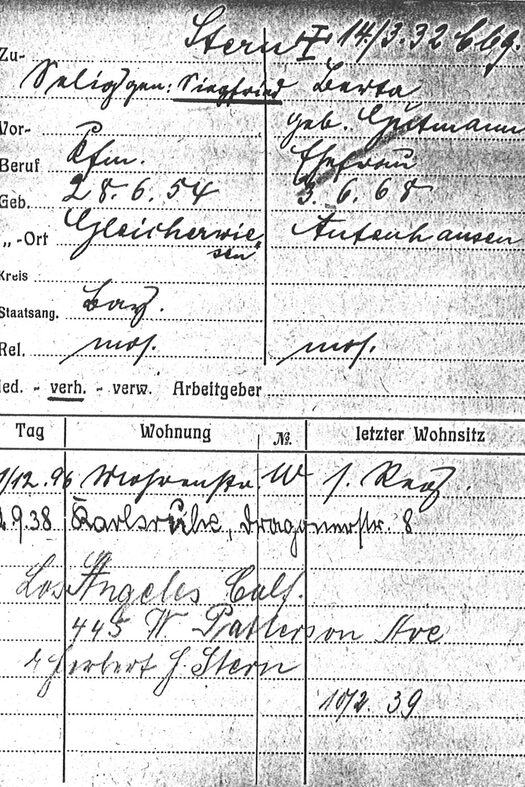 Zu- Stern I † 14/3.32 669.
Seligsgen: Siegfried Berta
Vor- geb. Gutmann
Beruf Kfm. Ehefrau
Geb. 28.6.54 3.6.68
„-Ort Gleicherwie Autenhausen
sen"
Kreis
Staatsang. bay.
Rel. mos. mos.
led. - verh. - verw. Arbeitgeber
Tag Wohnung № letzter Wohnsitz
1/12.96 Mohrenstr. W s. Reg.
1.9.38 Karlsruhe, Dragonerstr. 8
Los Angeles Calf.
445 W Patterson Ave
Herbert J. Stern
10/2 39